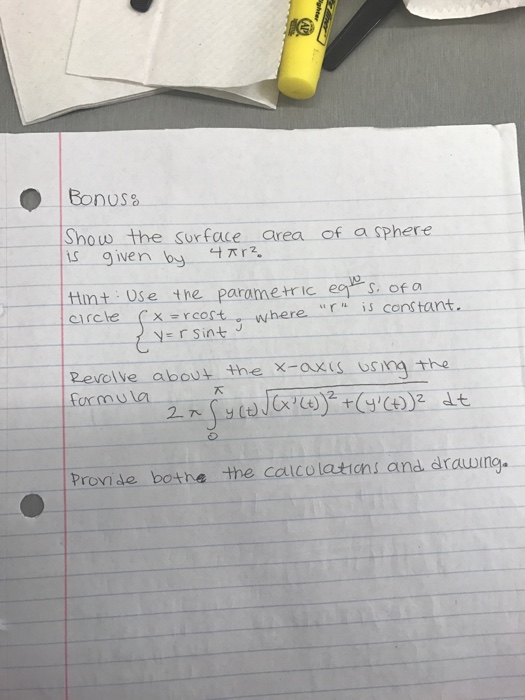 Bonus:
Show the surface area of a sphere
is given by 4πr².
Hint: Use the parametric eqⁿs. of a
circle { x = rcost , where "r" is constant.
y = r sint
Revolve about the x-axis using the
formula
2π ∫₀^π y(t) √((x'(t))² + (y'(t))²) dt
Provide bothe the calculations and drawing.